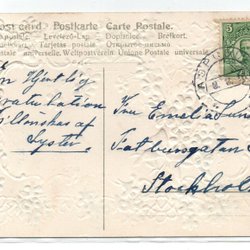 ost card. Postkarte Carte Postale.
Levelező-Lap. Dopisnice. Brefkort.
Tarjetas postal Открытое письмо.
universelle. Weltpostverein Unione Postale universal
En Hjertlig
Gratulation
tillönskas af
Syster
Fru Emelia
Fatbursgatan
Stockhol
5